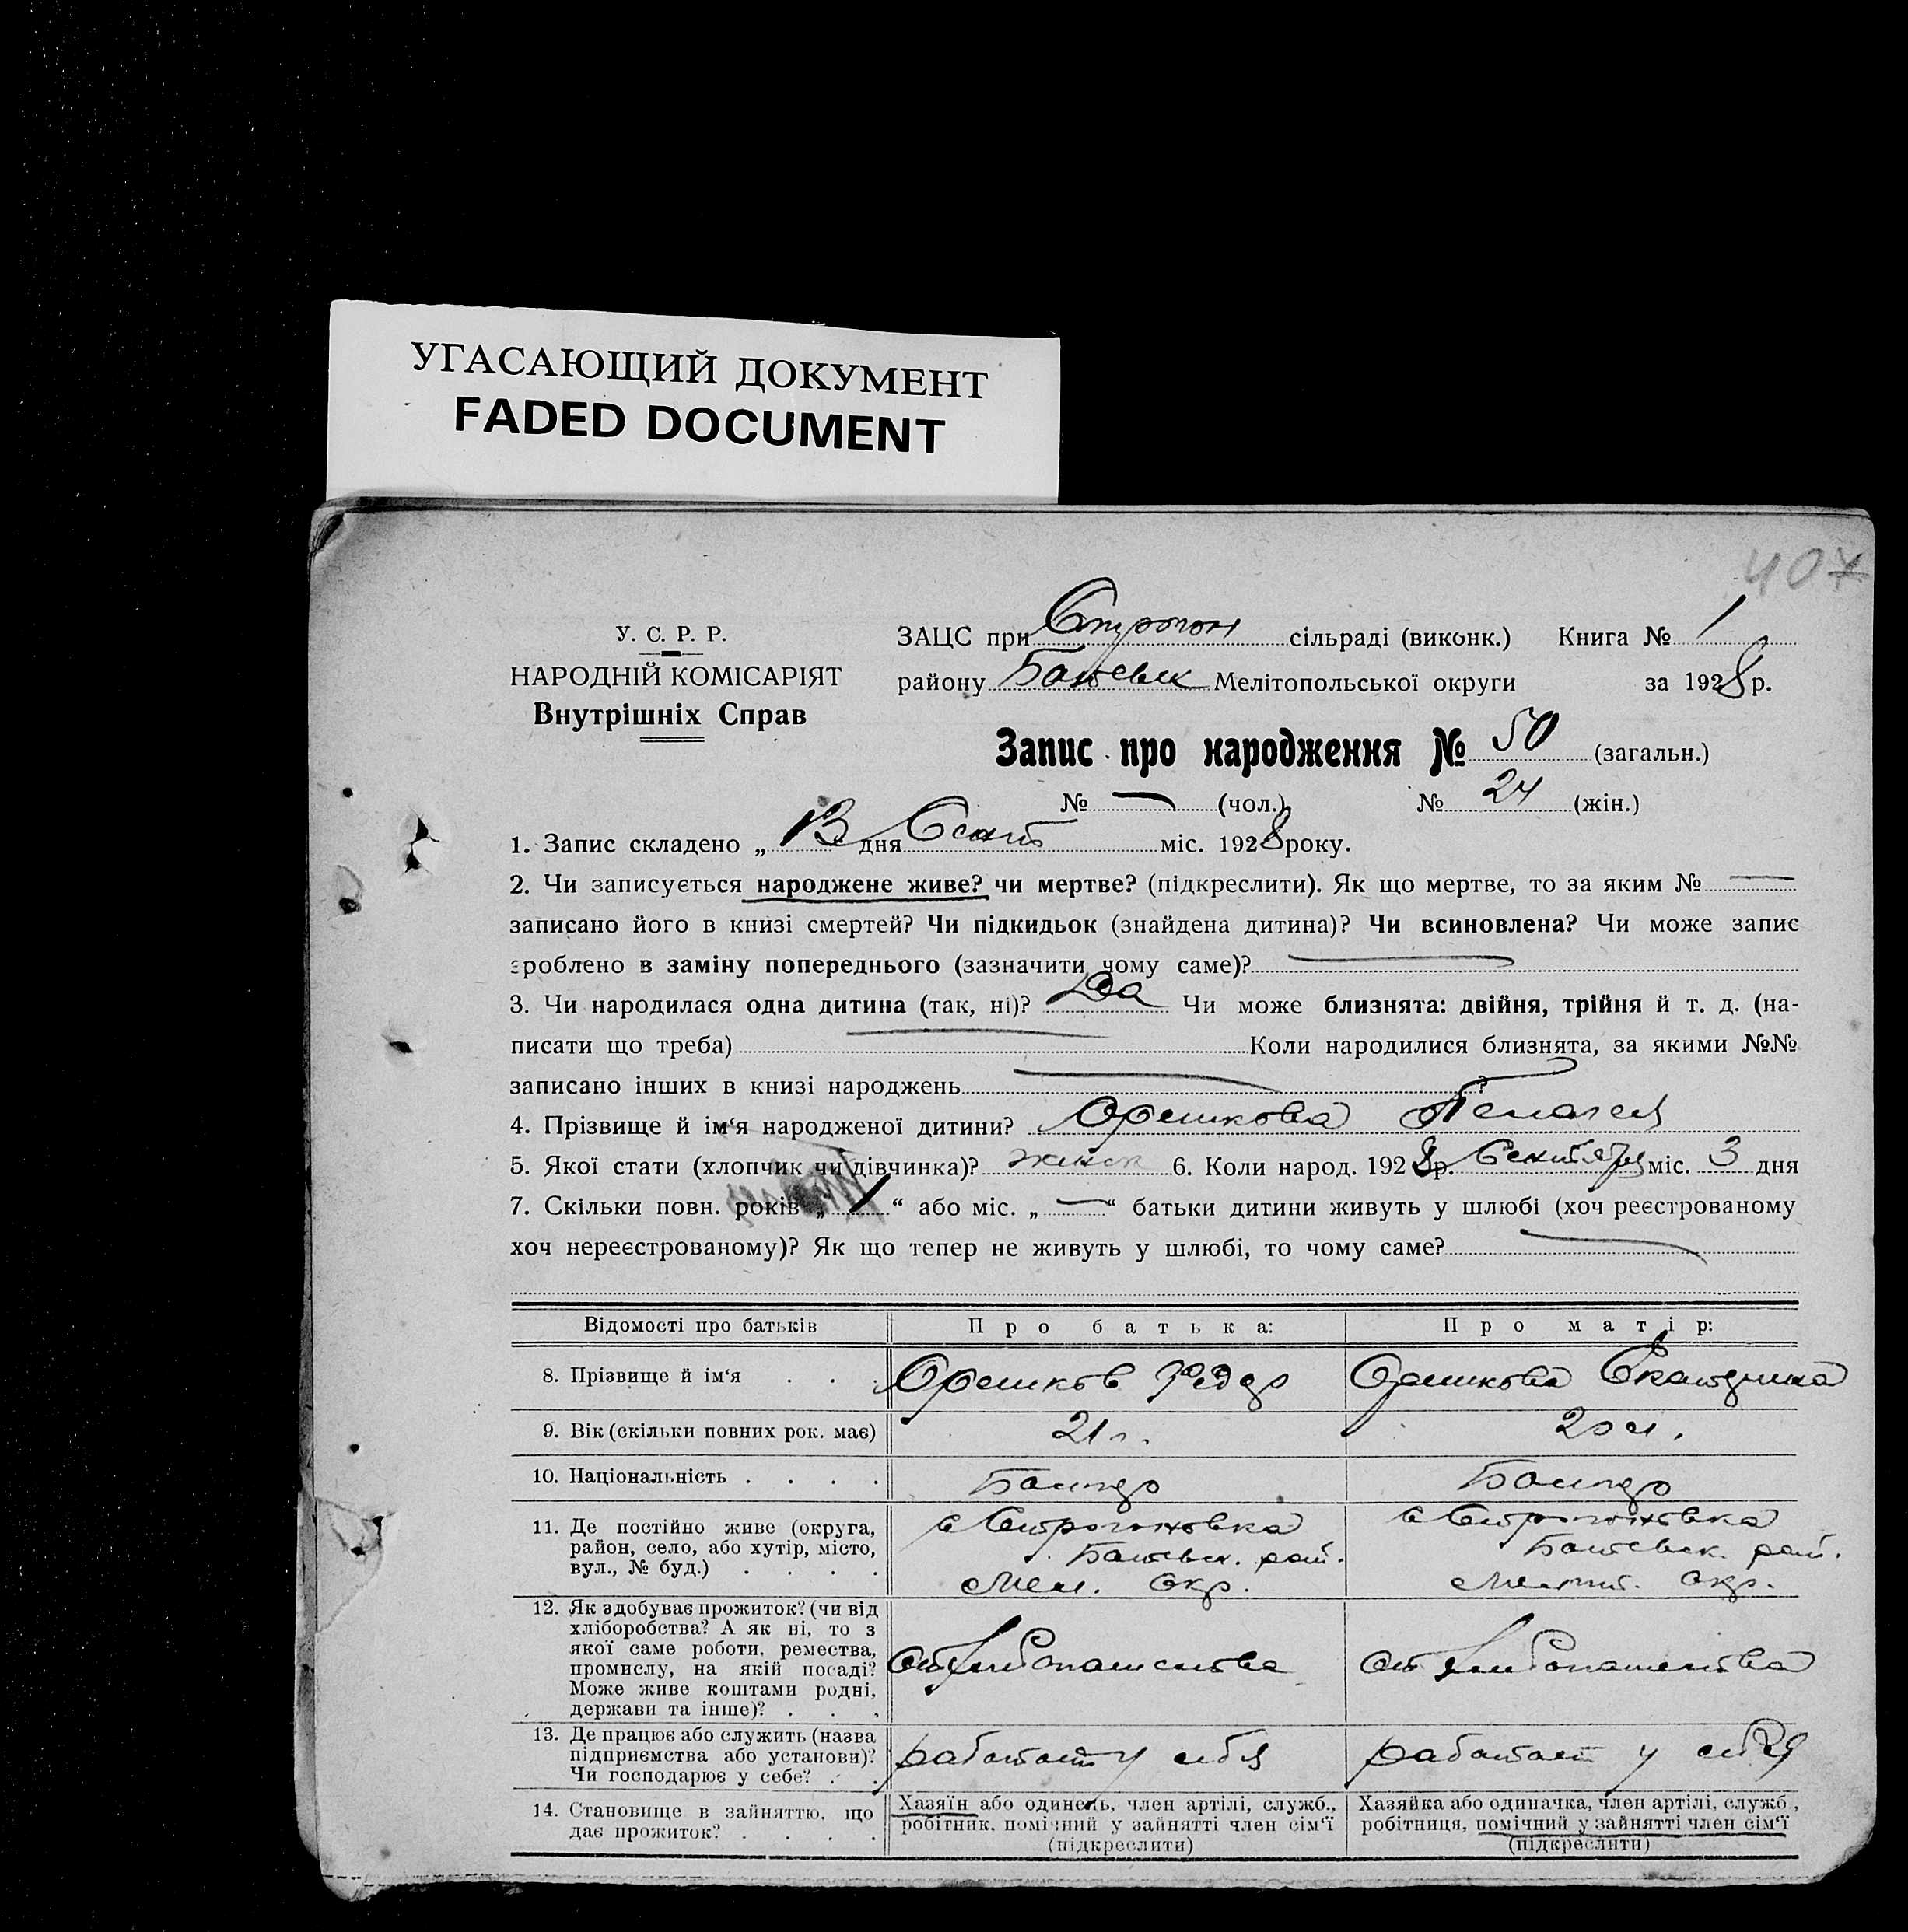 УГАСАЮЩИЙ ДОКУМЕНТ
FADED DOCUMENT
407
У. С. Р. Р.
НАРОДНІЙ КОМІСАРІЯТ
Внутрішніх Справ
ЗАЦС при Строгон сільраді (виконк.) Книга № 1
району Мелітопольської округи за 1928 р.
Запис про народження № 50 (загальн.)
№ — (чол.) № 24 (жін.)
1. Запис складено „ 13 дня Сент міс. 1928 року.
2. Чи записується народжене живе? чи мертве? (підкреслити). Як що мертве, то за яким № —
записано його в книзі смертей? Чи підкидьок (знайдена дитина)? Чи всиновлена? Чи може запис
зроблено в заміну попереднього (зазначити чому саме)? —
3. Чи народилася одна дитина (так, ні)? Да Чи може близнята: двійня, трійня й т. д. (на-
писати що треба) — Коли народилися близнята, за якими №№
записано інших в книзі народжень — ?
4. Прізвище й ім‘я народженої дитини? Орешкова Пелагея
5. Якої стати (хлопчик чи дівчинка)? женск 6. Коли народ. 1928 р. Сентября міс. 3 дня
7. Скільки повн. років „ 1 “ або міс. „ — “ батьки дитини живуть у шлюбі (хоч реєстрованому
хоч нереєстрованому)? Як що тепер не живуть у шлюбі, то чому саме? —
Відомості про батьків Про батька: Про матір:
8. Прізвище й ім‘я . . . Орешков Федор Орешкова Екатерина
9. Вік (скільки повних рок. має) 21 г. 20 л.
10. Національність . . . . Болгар Болгар
11. Де постійно живе (округа, с Строгоновка с Строгоновка
район, село, або хутір, місто, рай. рай.
вул., № буд.) . . . . Мел. Окр. Мелит. Окр.
12. Як здобуває прожиток? (чи від
хліборобства? А як ні, то з
якої саме роботи, ремества,
промислу, на якій посаді? От хлебопашества От хлебопашества
Може живе коштами родні,
держави та інше)? . . .
13. Де працює або служить (назва
підприємства або установи)? работает у себя работает у себя
Чи господарює у себе? . .
14. Становище в зайняттю, що Хазяїн або одинець, член артілі, служб., Хазяйка або одиначка, член артілі, служб.,
дає прожиток? . . . . робітник, помічний у зайнятті член сім‘ї робітниця, помічний у зайнятті член сім‘ї
(підкреслити) (підкреслити)